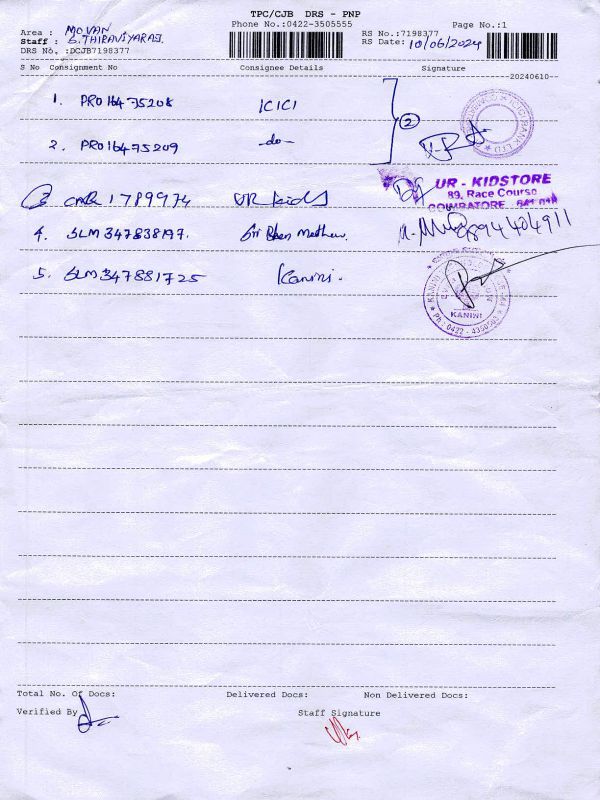 TPC/CJB DRS - PNP
Phone No.:0422-3505555
Page No.:1
Area : MOVAN
Staff : S.THIRAVIYARAJ.
DRS No. :DCJB7198377
RS No.:7198377
RS Date: 10/06/2024
S No Consignment No Consignee Details Signature
20240610
1. PRO16475208 ICICI
2. PRO16475209 -do- 2
3 CNR 1789974 UR Kids
UR - KIDSTORE
89, Race Course
COIMBATORE
4. SLM 347838197. Sri
5. SLM347881725 Kanini.
KANINI
Ph: 0422 - 4350503
Total No. Of Docs: Delivered Docs: Non Delivered Docs:
Verified By Staff Signature